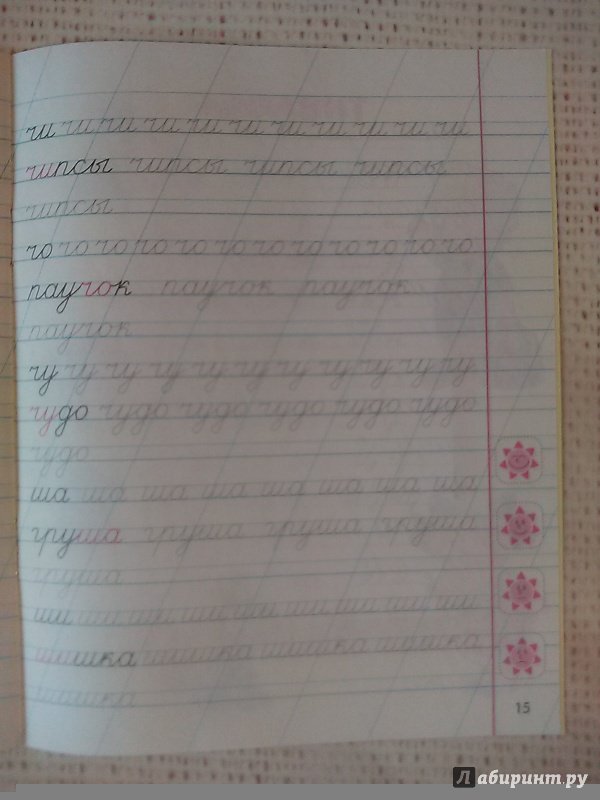 чи чи чи чи чи чи чи чи чи чи чи
чипсы чипсы чипсы чипсы
чипсы
чо чо чо чо чо чо чо чо чо чо чо чо
паучок паучок паучок
паучок
чу чу чу чу чу чу чу чу чу чу чу
чудо чудо чудо чудо чудо чудо
чудо
ша ша ша ша ша ша ша ша
груша груша груша груша
груша
ши ши ши ши ши ши ши ши ши
шишка шишка шишка шишка
шишка
15
Лабиринт.ру